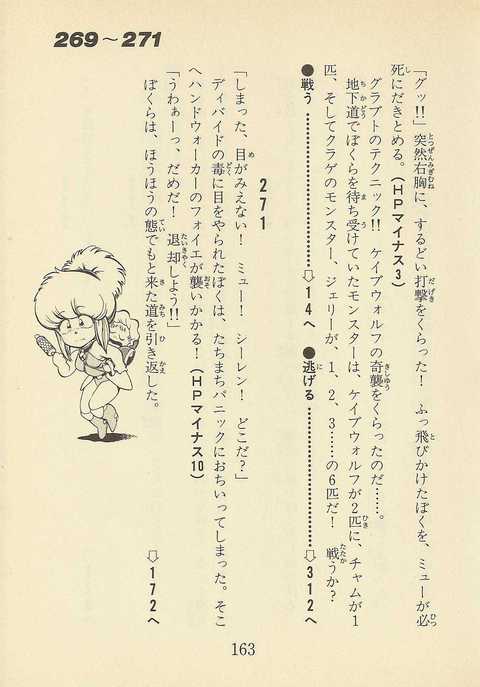 269～271
「グッ!!」突然右胸に、するどい打撃をくらった！　ふっ飛びかけたぼくを、ミューが必
死にだきとめる。（HPマイナス3）
グラブトのテクニック!!　ケイブウォルフの奇襲をくらったのだ……。
地下道でぼくらを待ち受けていたモンスターは、ケイブウォルフが2匹に、チャムが1
匹、そしてクラゲのモンスター、ジェリーが、1、2、3……の6匹だ！　戦うか？
●戦う…………………⇨14へ　●逃げる…………………⇨312へ
271
「しまった、目がみえない！　ミュー！　シーレン！　どこだ？」
ディバイドの毒に目をやられたぼくは、たちまちパニックにおちいってしまった。そこ
へハンドウォーカーのフォイエが襲いかかる！（HPマイナス10）
「うわぁーっ、だめだ！　退却しよう!!」
ぼくらは、ほうほうの態でもと来た道を引き返した。
⇨172へ
163